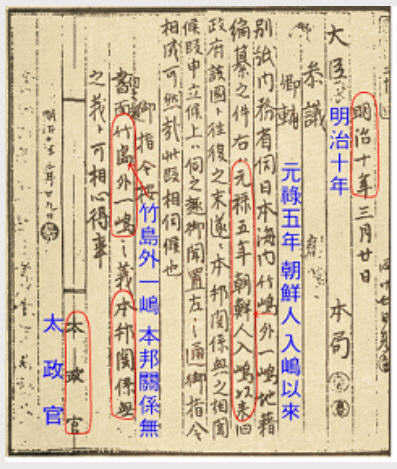 明治十年三月廿日
明治十年
大臣 本局
参議
卿輔
元祿五年 朝鮮人 入嶋以來
別紙内務省伺日本海内竹嶋外一嶋地籍
編纂之件右ハ元禄五年朝鮮人入嶋以来旧
政府該国ト往復之末遂ニ本邦関係無之相聞
候段申立候上ハ伺之趣御聞置左之通御指令
相成可然哉此段相伺候也
御指令按
竹島外一嶋 本邦關係無
書面竹島外一嶋之義本邦関係無
之義ト可相心得事
太政官
太政官
明治十年三月廿九日